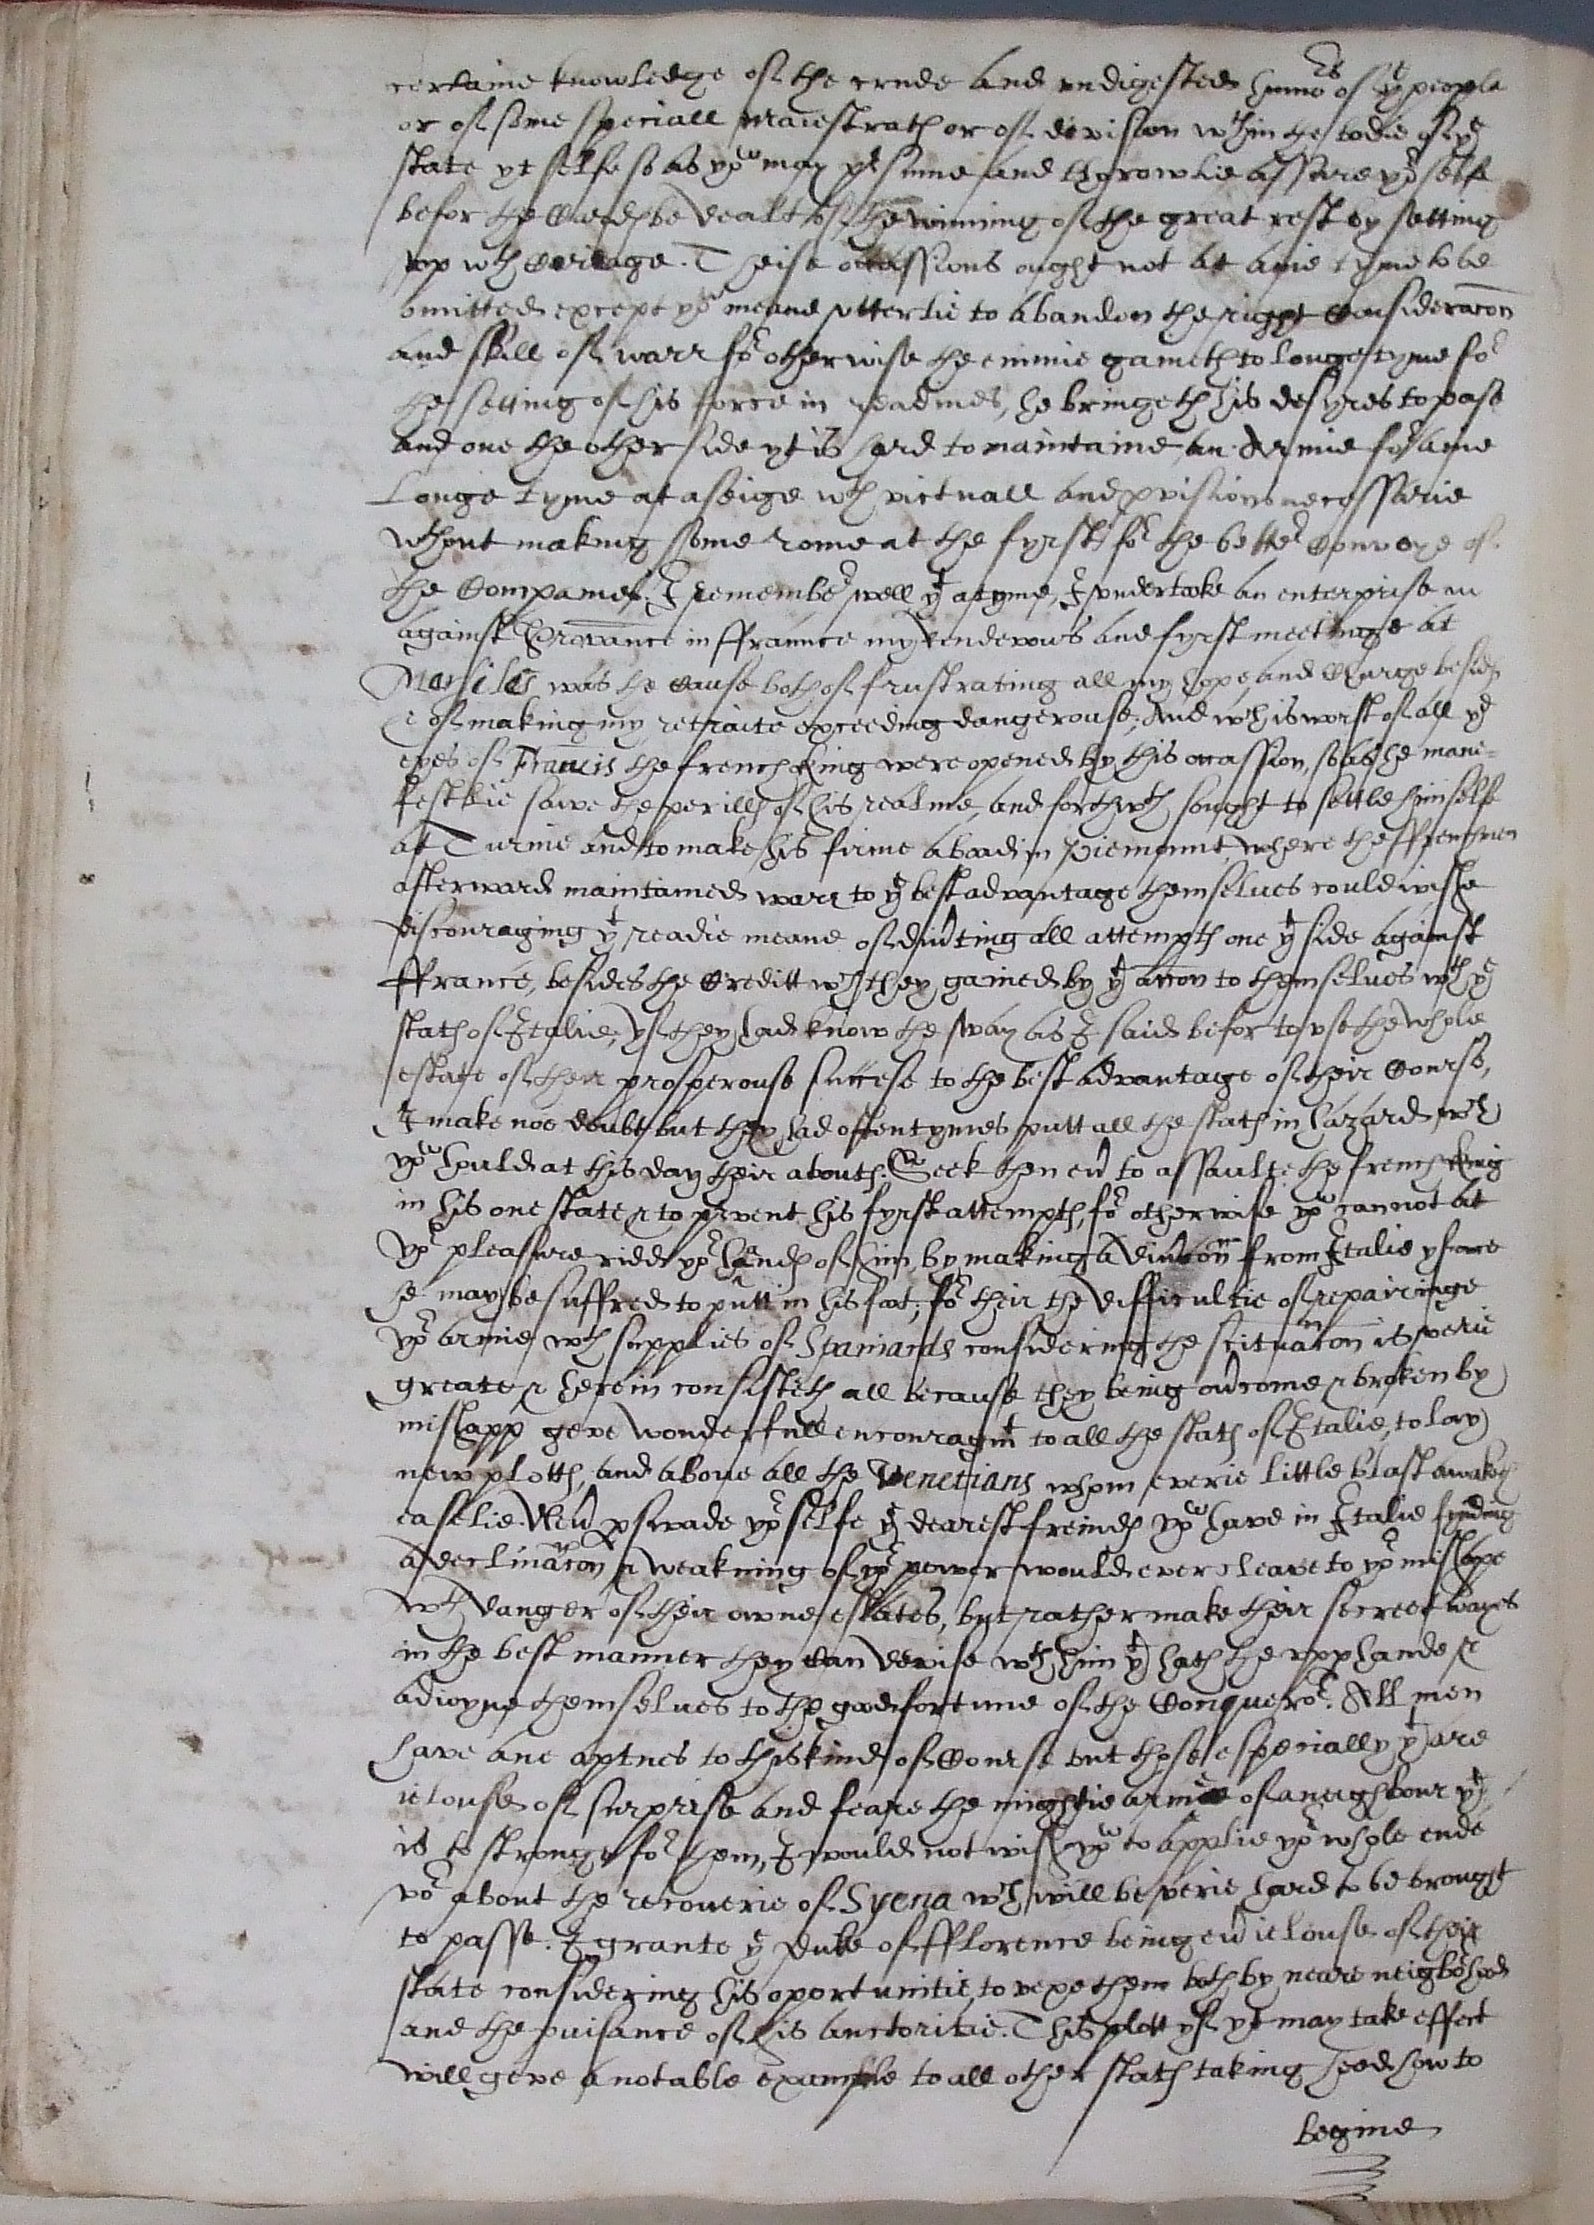 certaine knowledge of the crude and vndigested humors of ye people
or of some speciall maiestrats or of division wthin the bodie of ye
state yt selfe so as yow may p̱sume and throwlie assure yor selfe
befor the Cards be dealt of the winning of the great rest by setting
vp wth Corage. Theise occassions ought not at anie tyme to be
omitted except yow meane vtterlie to abandon the right Consideracon
and skill of warr for otherwise the enimie gaineth to longe tyme for
the setting of his force in readines, he bringeth his desyres to pass
and one the other side yt is hard to maintaine an Armie for anie
longe tyme at a seige wth victuall and pvision necessarie
wthout making some rome at the fyrst for the better Conveye of
the Companies. I remember well yt a tyme, I vndertooke an enterprise
against Provance in ffraunce my endevours and fyrst meetinge at
Marsiles was the Cause both of frustrating all my hope, and Charge besides
& of making my retraite exceeding dangerouse, And wch is worst of all ye
eyes of Francis the french King were opened by this occassion, so as he mani-
festlie sawe the perills of his realme, and forthwth sought to settle himselfe
at Turine and to make his firme aboad in Piemount, where the ffrenchmen
afterward maintained warr to ye best advantage themselues could wishe
discouraging yt readie meane of diu̓ting all attempts one yt side against
ffrance, besides the Creditt wch they gained by yt accon to themselues wth ye
stats of Italie, yf they had know the way as I said befor to vse the whole
estate of their prosperouse successe to the best advantage of their Course,
I make noe doubt but they had oftentymes putt all the stats in hazard wch
yow hould at this day their abouts. Seek then eu̓ to assaulte the french King
in his one state & to pṟvent his fyrst attempts, for otherwise yow cannot at
yor pleasure ridd yor hands of him by making a diu̓con from Italie yf once
he may be suffred to putt in his foot, for their the difficultie of repairinge
yor armie wth supplies of Spaniards considering the scituacon is verie
greate, & herein consisteth all because they being ou̓come & broken by
mishapp geve wonderfull encouragmt to all the stats of Italie, to lay
new plotts, and aboue all the Venetians whom everie little blast awaketh
easelie. Neu̓ pswade yor selfe yt dearest freinds yow have in Italie fynding
a declinacon & weakning of yor power would ever cleave to yor mishape
wth danger of their owne estates, but rather make their secreet wayes
in the best manner they Can devise wth him yt hath the vpp hande &
adioyne themselues to the good fortune of the Conqueror. All men
have ane aptnes to this kind of Course but those especially yt are
ielouse of surprise and feare the mightie armie of a neighbour yt
is to stronge for them, I would not wish yow to applie yor whole ende
vor about the recouerie of Syena wch will be verie hard to be brought
to passe. I grante ye Duke of fflorence being eu̓ ielouse of their
state considering his oportunitie, to vexe them both by neare neighborhood
and the puisance of his auctoritie. This plott yf yt may take effect
will geve a notable example to all other stats taking heed how to
begine